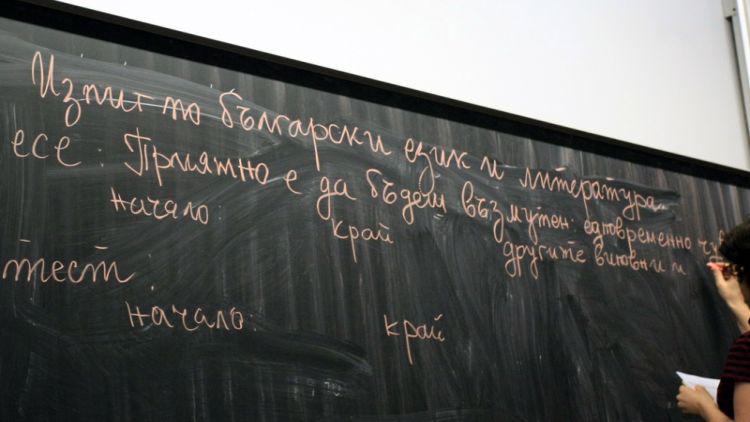 Изпит по български език и литература
есе: Приятно е да бъдеш възмутен: едновременно
другите виновни и
начало: край
тест:
начало: край